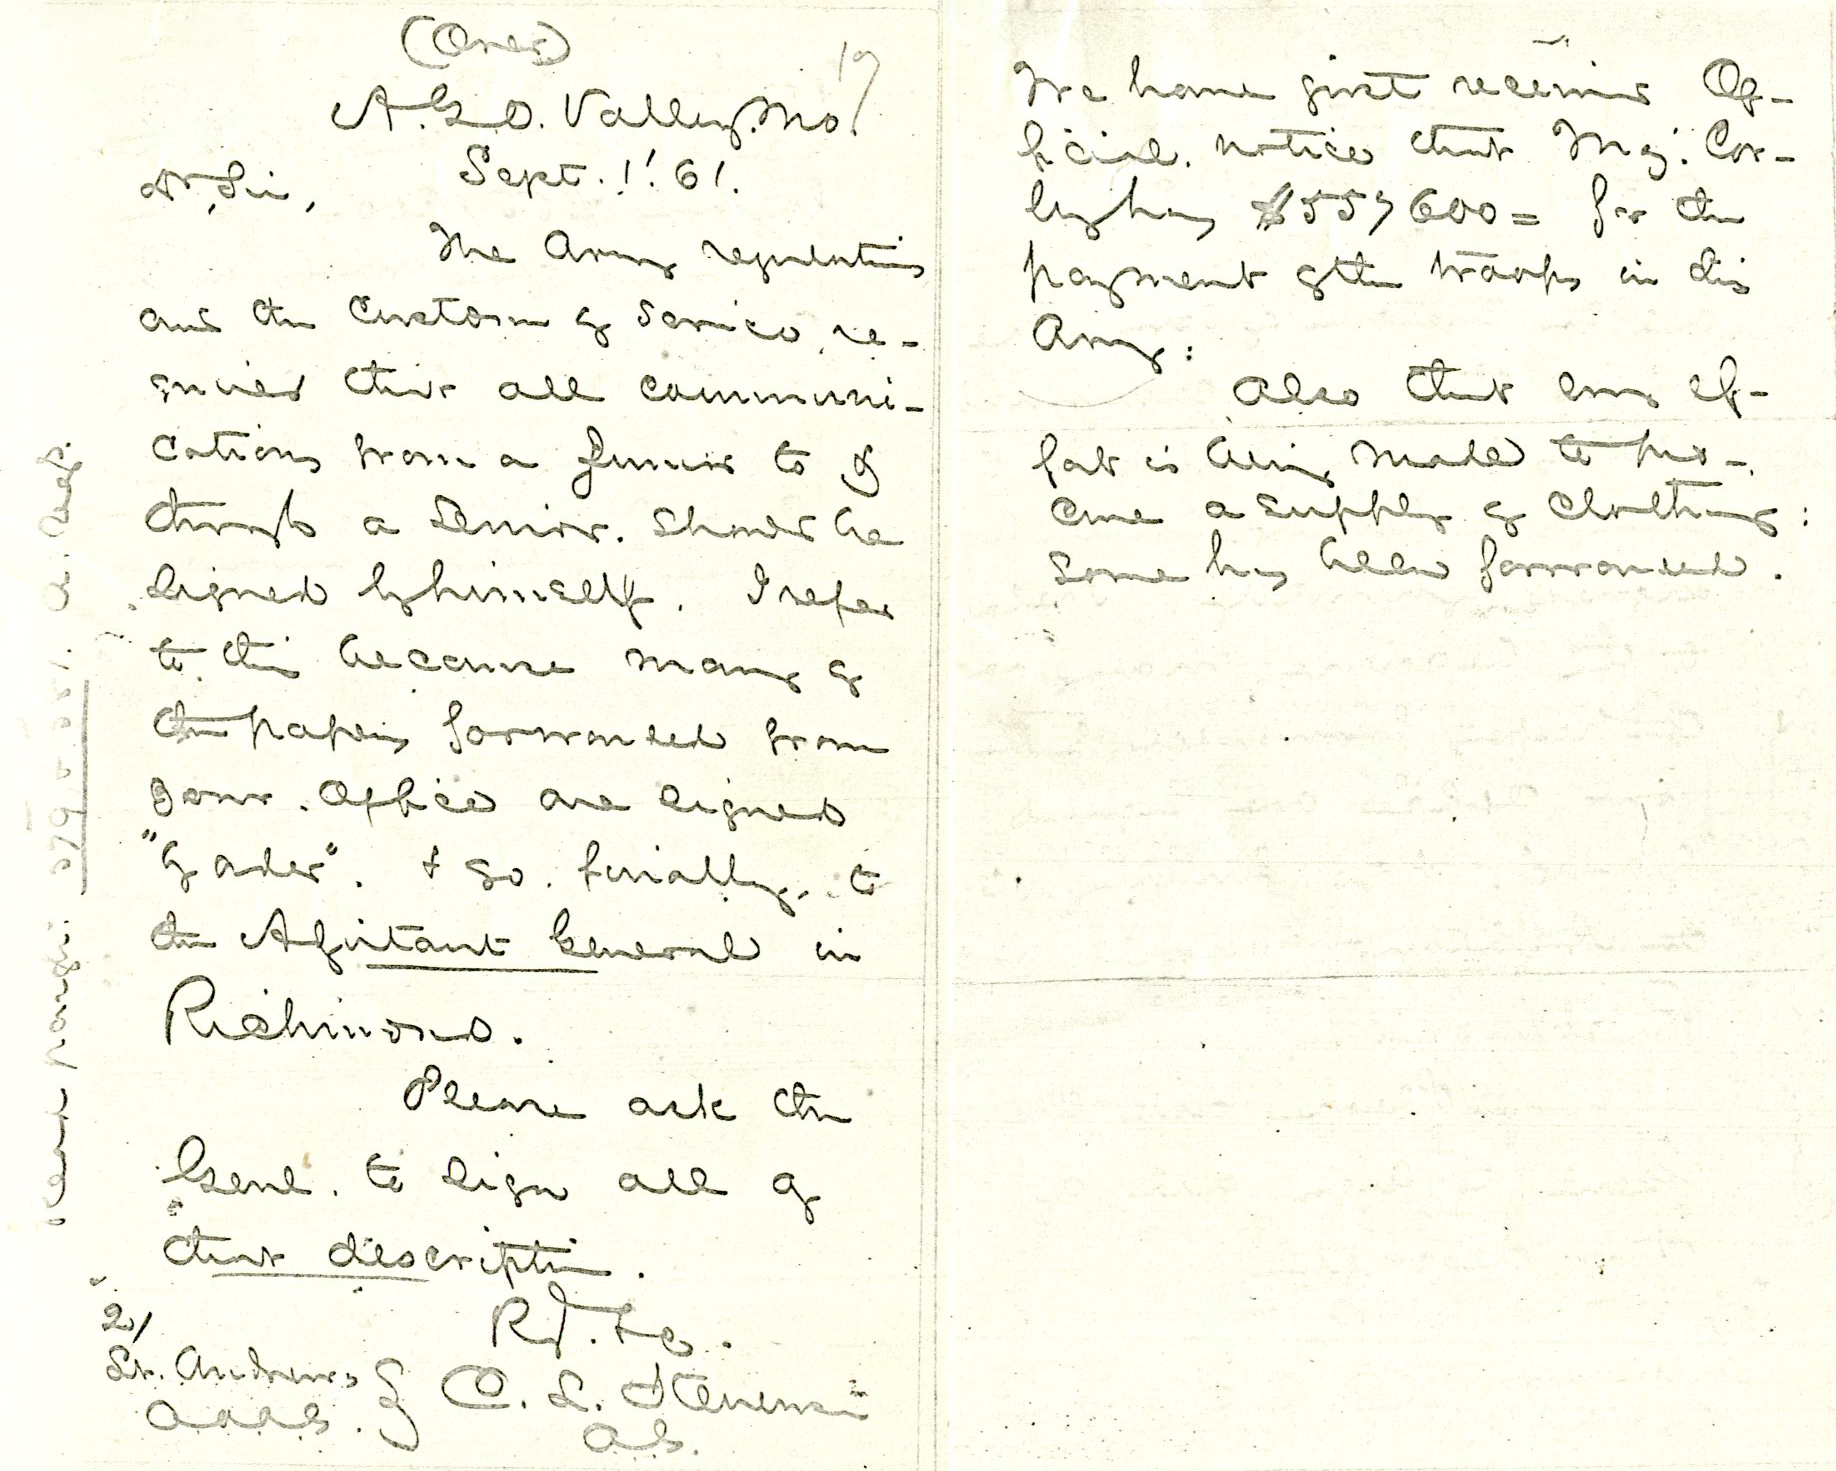 (Over)
19
A.G.O. Valley Mo.
Sept. 1! 61.
Dr. Sir,
The Army regulations
and the Custom of Service, re-
quires that all communi-
cations from a Junior to &
through a Senior. Should be
signed by himself. I refer
to this because many of
the papers forwarded from
your Office are signed
"By order". & go. finally, to
the Adjutant General in
Richmond.
Please ask the
Genl. to sign all of
that description.
Ry. &c.
C. L. Stevenson
A.G.
2/
Lt. Andrews
A.A.A.G.
We have just received Of-
ficial. notice that Maj. Cor-
ley has $557600= for the
payment of the troops in this
Army:
Also that every ef-
fort is being made to pro-
cure a supply of Clothing:
some has been forwarded.